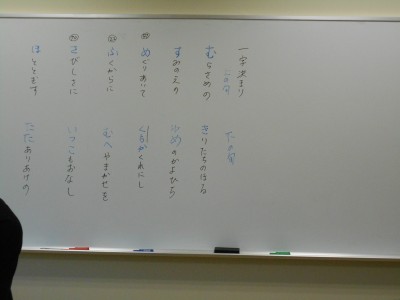 一字決まり
上の句
下の句
むらさめの
きりたちのぼる
すみのえの
ゆめのかよひぢ
めぐりあいて
くもがくれにし
ふくからに
むべやまかぜを
さびしさに
いづこもおなじ
ほととぎす
ただありあけの